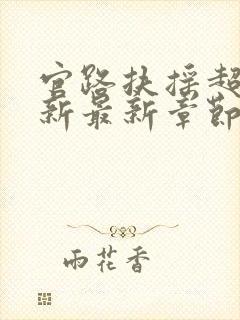 官路扶摇超
新最新章节
雨花香